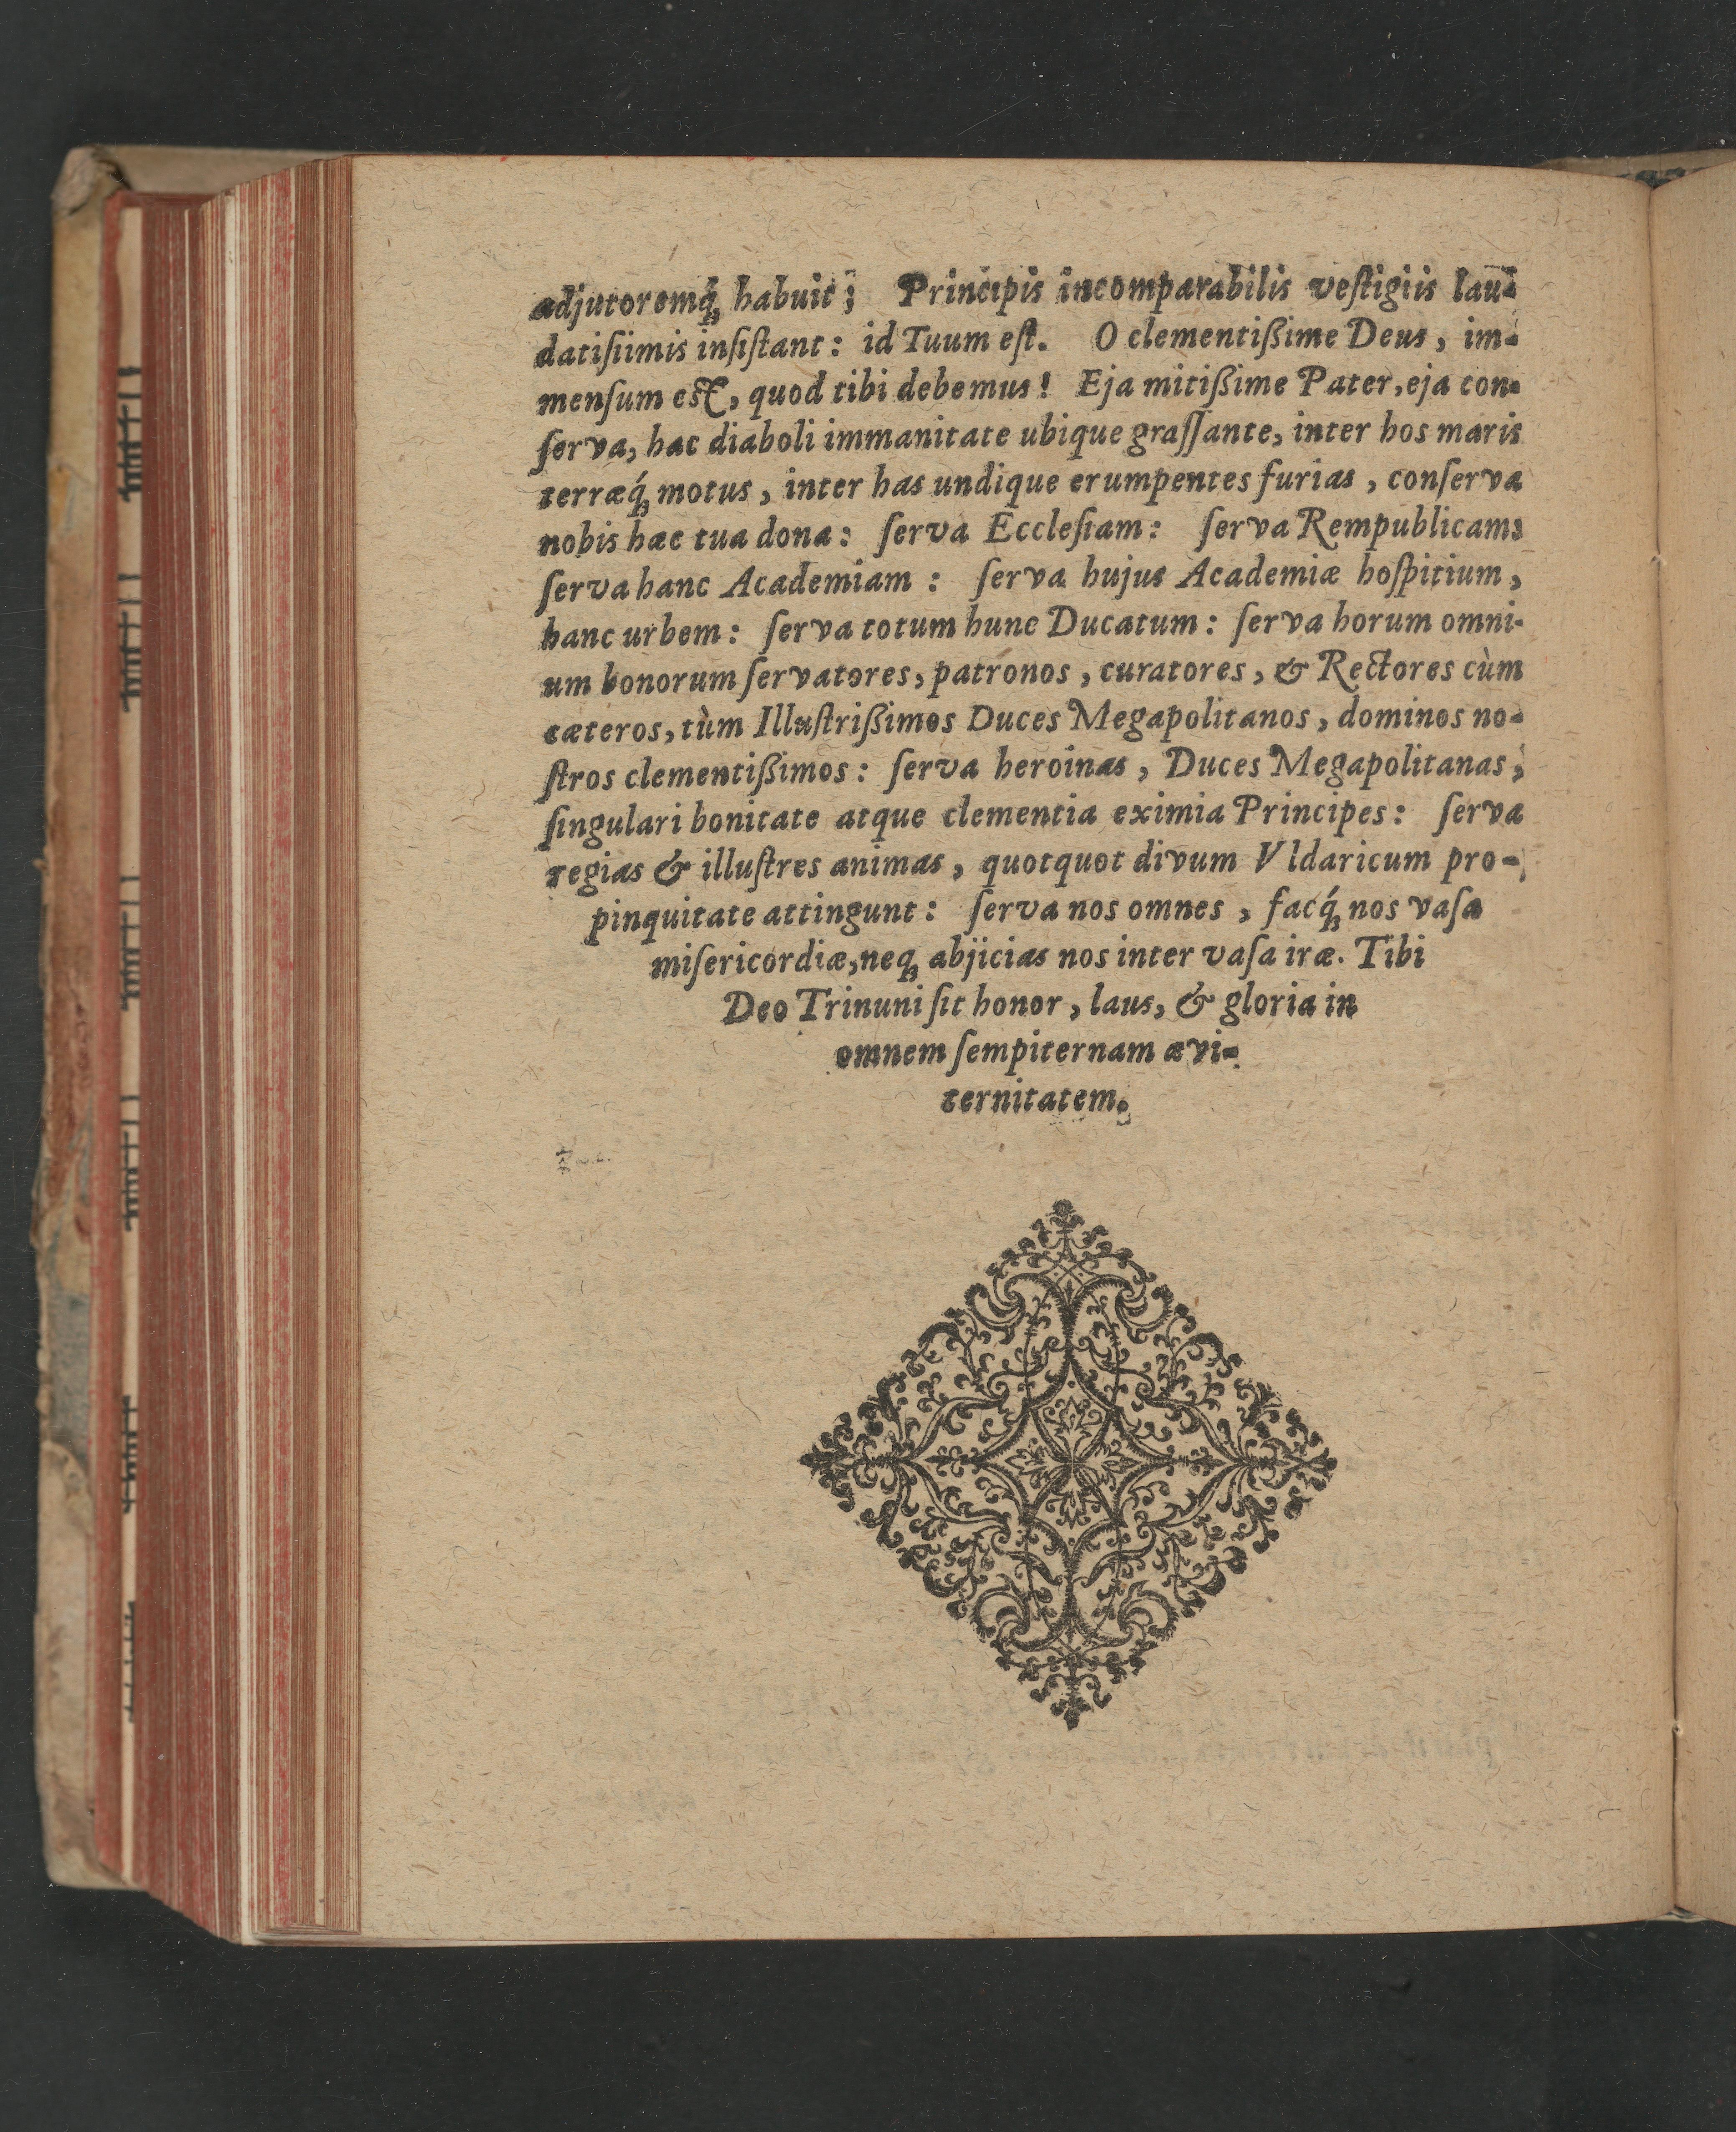 adjutoremq́ꝫ habuit; Principis incomparabilis veſtigiis lau-
datiſsimis inſiſtant: id Tuum eſt. O clementißime Deus, im-
menſum est, quod tibi debemus! Eja mitißime Pater, eja con-
ſerva, hac diaboli immanitate ubique graſſante, inter hos maris
terræq́ꝫ motus, inter has undique erumpentes furias, conſerva
nobis hæc tua dona: ſerva Eccleſiam: ſerva Rempublicam:
ſerva hanc Academiam: ſerva hujus Academiæ hoſpitium,
hanc urbem: ſerva totum hunc Ducatum: ſerva horum omni-
um bonorum ſervatores, patronos, curatores, & Rectores cùm
cæteros, tùm Illuſtrißimos Duces Megapolitanos, dominos no-
ſtros clementißimos: ſerva heroinas, Duces Megapolitanas,
ſingulari bonitate atque clementia eximia Principes: ſerva
regias & illuſtres animas, quotquot divum Vldaricum pro-
pinquitate attingunt: ſerva nos omnes, facq́ꝫ nos vaſa
miſericordiæ, neqꝫ abjicias nos inter vaſa iræ. Tibi
Deo Trinuni ſit honor, laus, & gloria in
omnem ſempiternam ævi-
ternitatem.